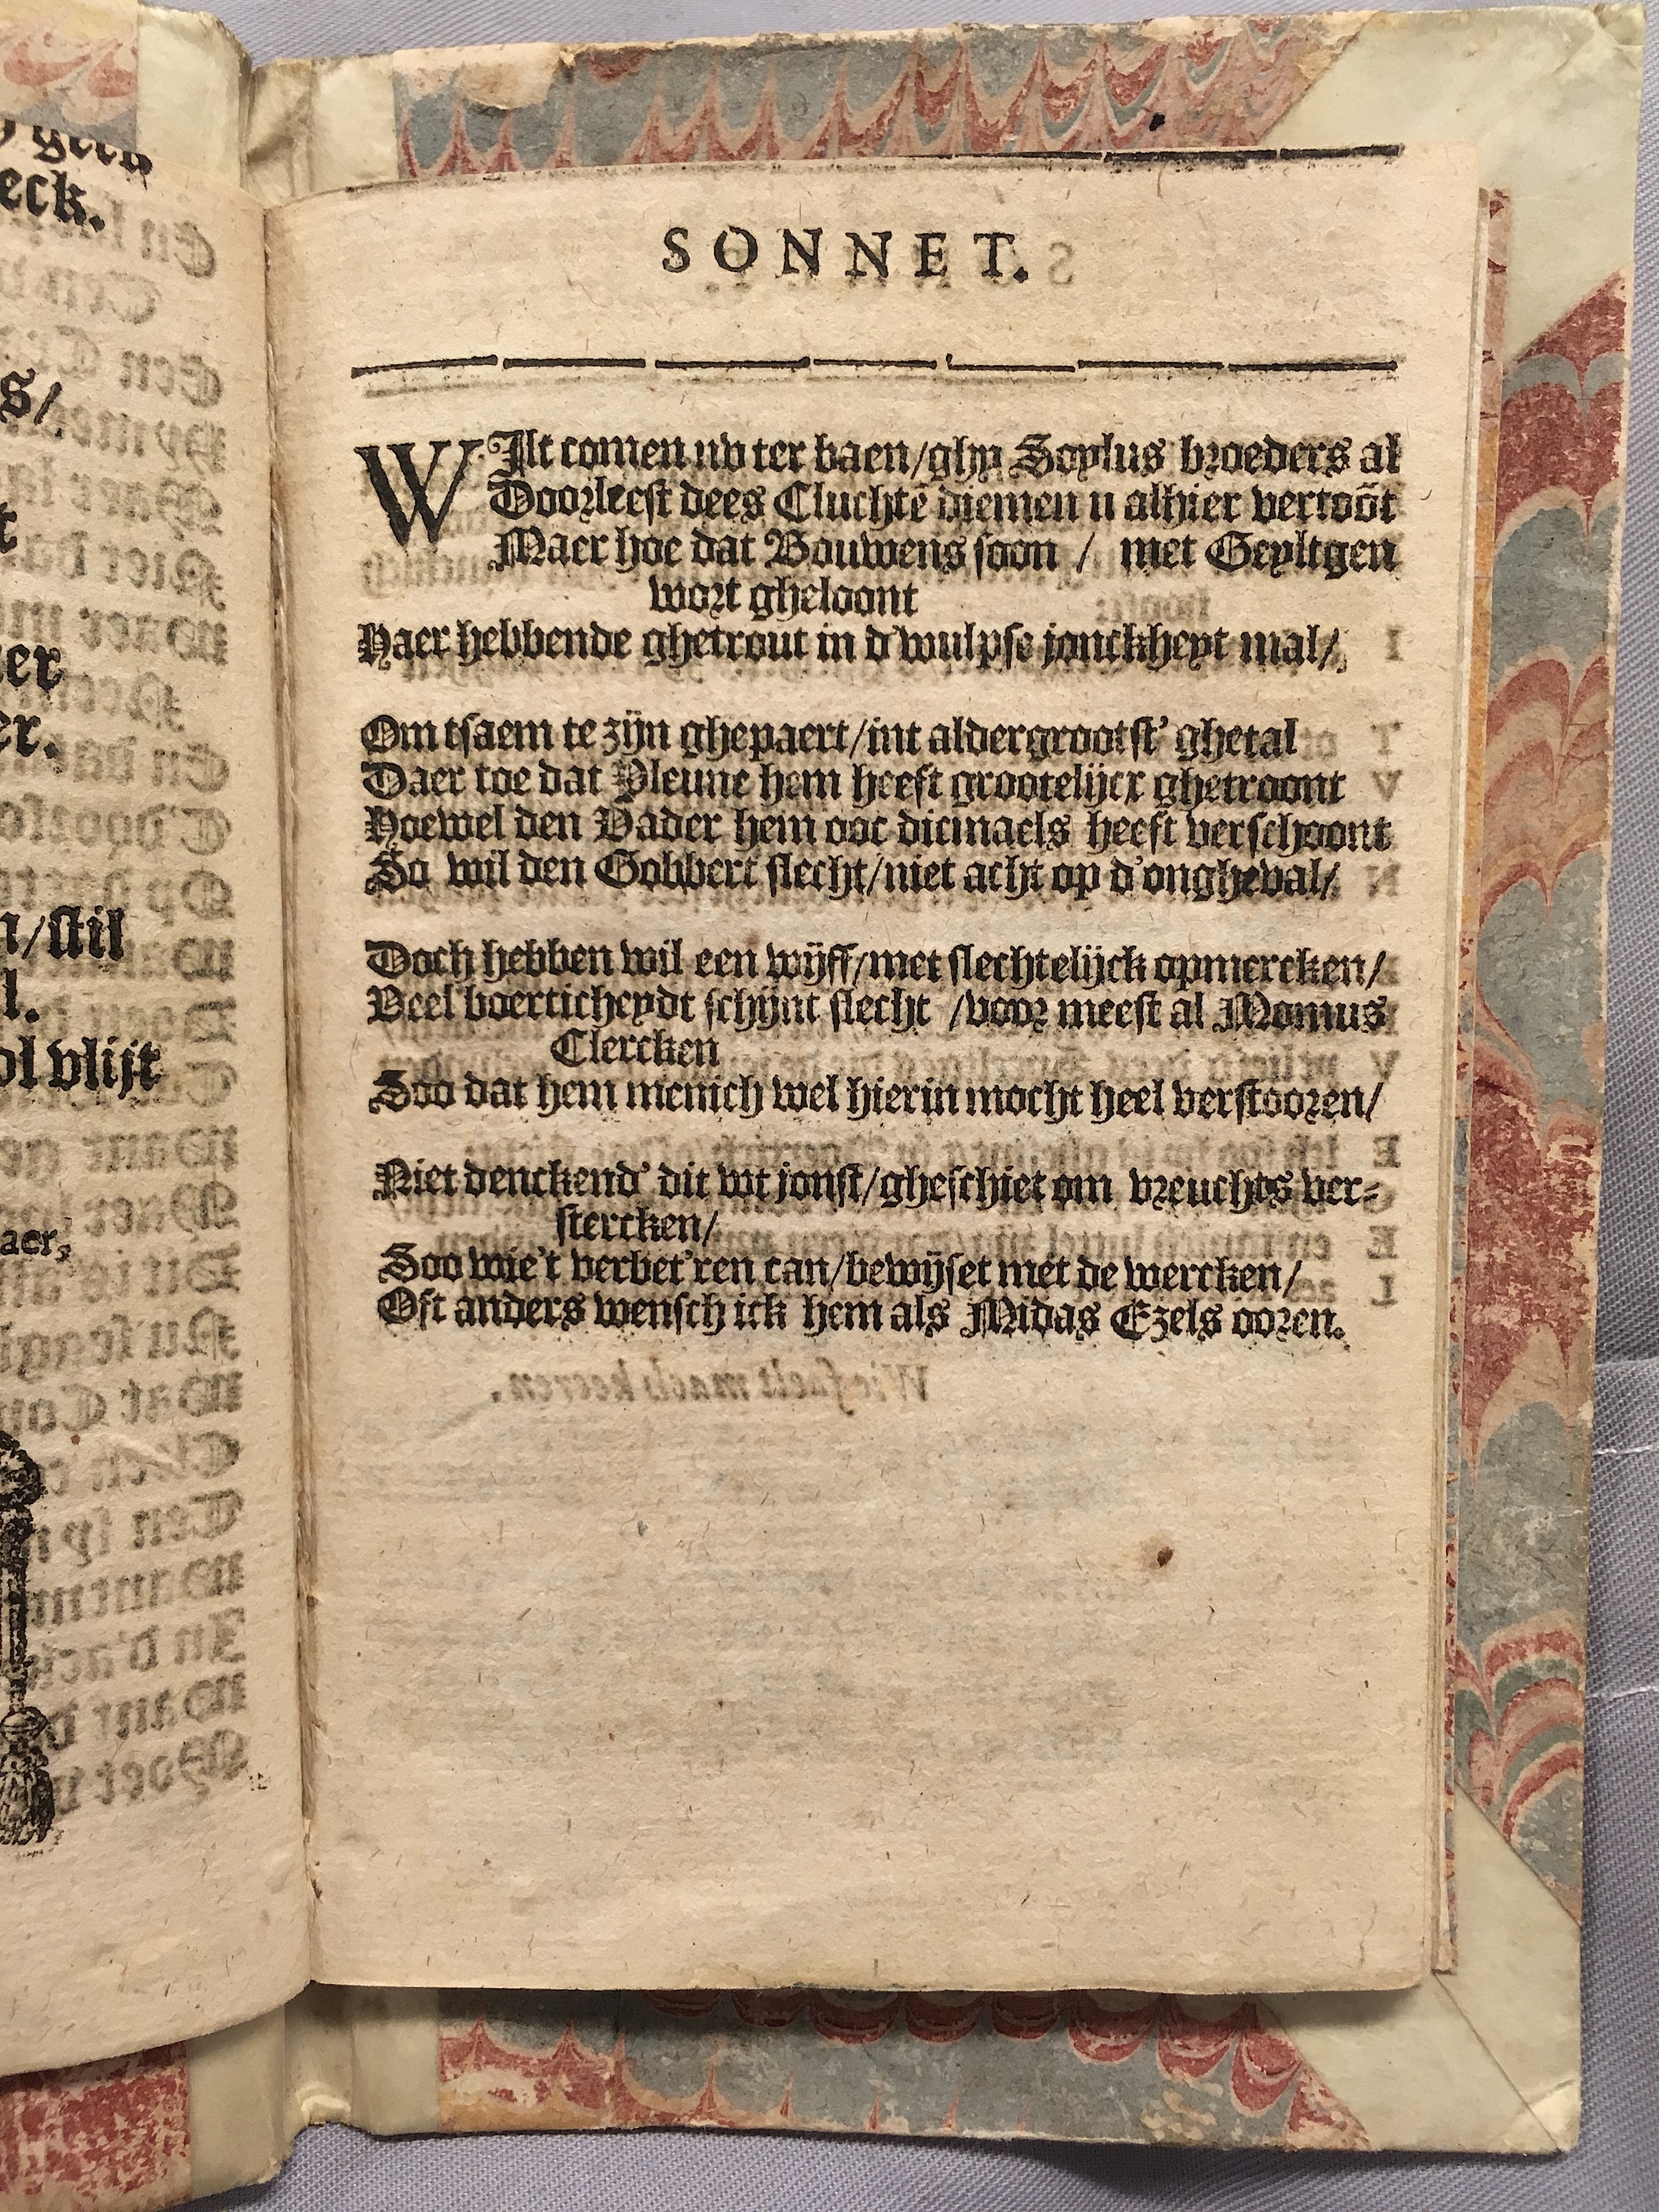 SONNET.
WIlt comen nv ter baen/ghy Soylus broeders al
Doorleest dees Cluchtē diemen u alhier vertoōt
Maer hoe dat Bouwens soon / met Geyltgen
wort gheloont
Haer hebbende ghetrout in d'wulpse jonckheyt mal/
Om tsaem te zijn ghepaert/int aldergrootst' ghetal
Daer toe dat Pleune hem heeft grootelijcx ghetroont
Hoewel den Vader hem ooc dicmaels heeft verschoont
So wil den Gobbert slecht/niet acht op d'ongheval/
Doch hebben wil een wijff/met slechtelijck opmercken/
Veel boerticheydt schijnt slecht /voor meest al Momus
Clercken
Soo dat hem menich wel hierin mocht heel verstooren/
Niet denckend' dit wt jonst/gheschiet om vreuchts ver-
stercken/
Soo wie't verbet'ren can/bewijset met de wercken/
Oft anders wensch ick hem als Midas Ezels ooren.
eck.
s/
t
er
er.
n/stil
l.
ol vlijt
aer,